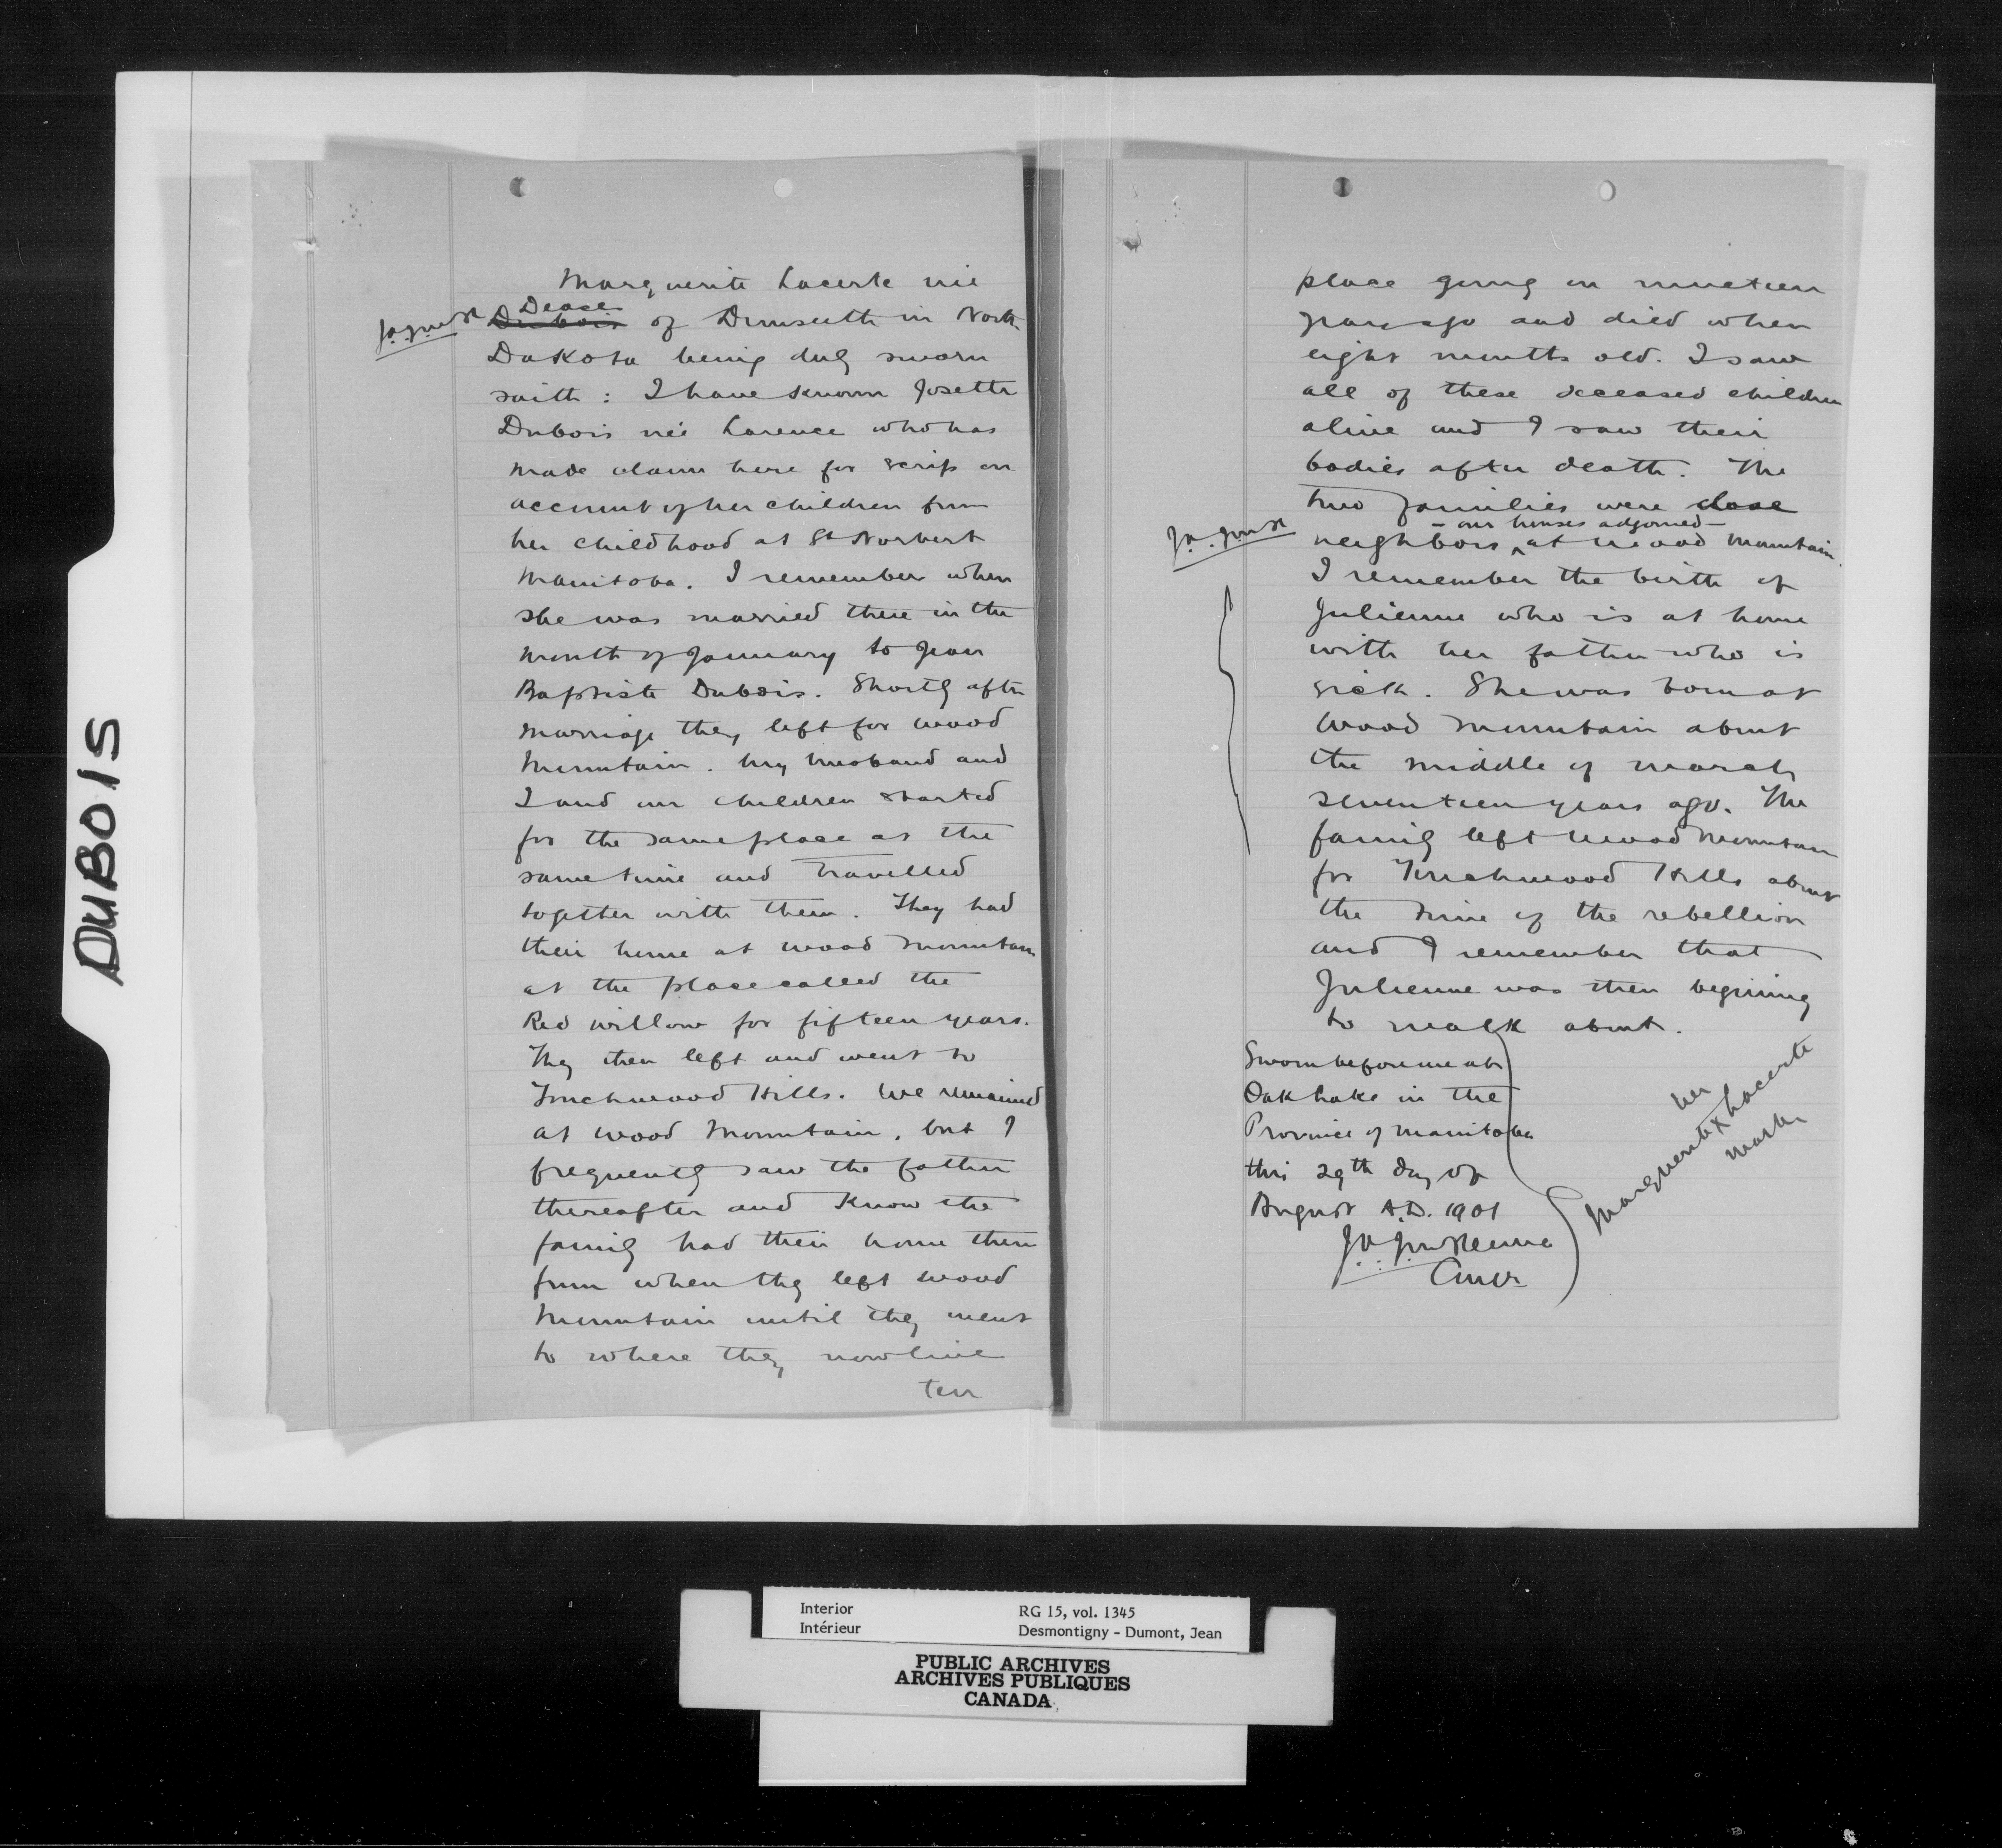 DUBOIS
Marguerite Lacerte née
J.A.J.McK Dubois Deace of Dunseith in North
Dakota being duly sworn
saith : I have known Josette
Dubois née Larence who has
made claim here for scrip on
account of her children from
her childhood at St Norbert
Manitoba. I remember when
she was married there in the
month of January to Jean
Baptiste Dubois. Shortly after
marriage they left for Wood
Mountain. My husband and
I and our children started
for the same place at the
same time and travelled
together with them. They had
their home at Wood Mountain
at the place called the
Red Willow for fifteen years.
They then left and went to
Touchwood Hills. We remained
at Wood Mountain, but I
frequently saw the father
thereafter and know the
family had their home there
from when they left Wood
Mountain until they went
to where they now live
ten
place going on nineteen
years ago and died when
eight months old. I saw
all of these deceased children
alive and I saw their
bodies after death. The
two families were close
- our houses adjoined -
J.A.J.McK neighbors at Wood Mountain.
I remember the birth of
Julienne who is at home
with her father who is
sick. She was born at
Wood Mountain about
the middle of March
seventeen years ago. The
family left Wood Mountain
for Touchwood Hills about
the time of the rebellion
and I remember that
Julienne was then begining
to walk about.
Sworn before me at
Oak Lake in the
Province of Manitoba
this 29th day of
August A.D. 1901
J.A.J.McKenna
Comr
her
Marguerite X Lacerte
mark
Interior
Intérieur
RG 15, vol. 1345
Desmontigny - Dumont, Jean
PUBLIC ARCHIVES
ARCHIVES PUBLIQUES
CANADA